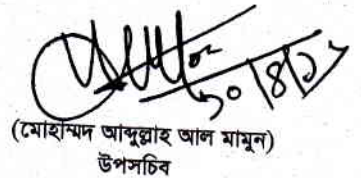 (মোহাম্মদ আব্দুল্লাহ আল মামুন)
উপসচিব